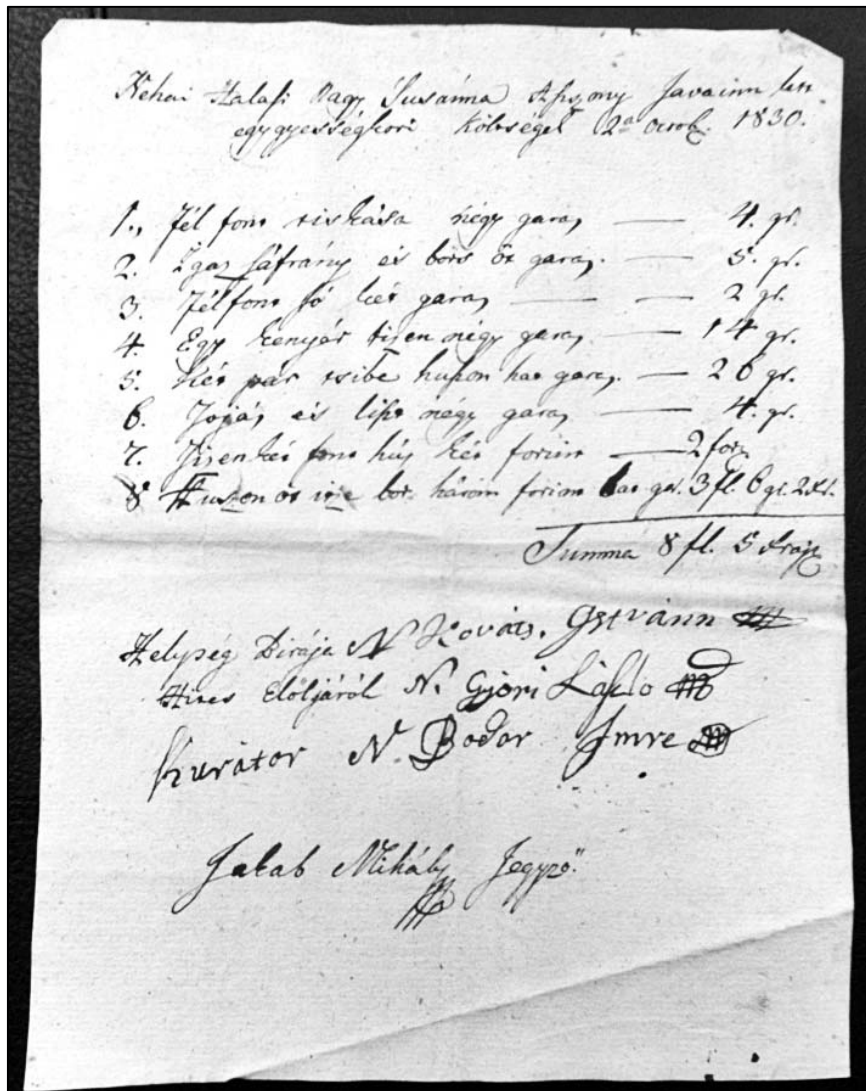 Néhai Halasi Nagy Susánna Aszszony Javainn lett
egygyességkori költségek 2a Octob. 1830.
1., Fél font riskása négy garas — 4. gr.
2. Igaz sáfrány és bors öt garas — 5. gr.
3. Fél font só két garas — 2 gr.
4. Egy kenyér tizen négy garas — 14 gr.
5. két pár tsibe huszon hat garas — 26 gr.
6. Tojás és liszt négy garas — 4. gr.
7. Tizenkét font hús két forint — 2 for.
8 Huszon öt itze bor három forint hat gar. 3 fl. 6 gr. 2 kr.
Summa 8 fl. 5 kraj.
Helység Birája N Kováts. Istvánn
Hites Előljáról N. Győri László
Kurátor N. Bodor Imre
Jakab Mihály Jegyző